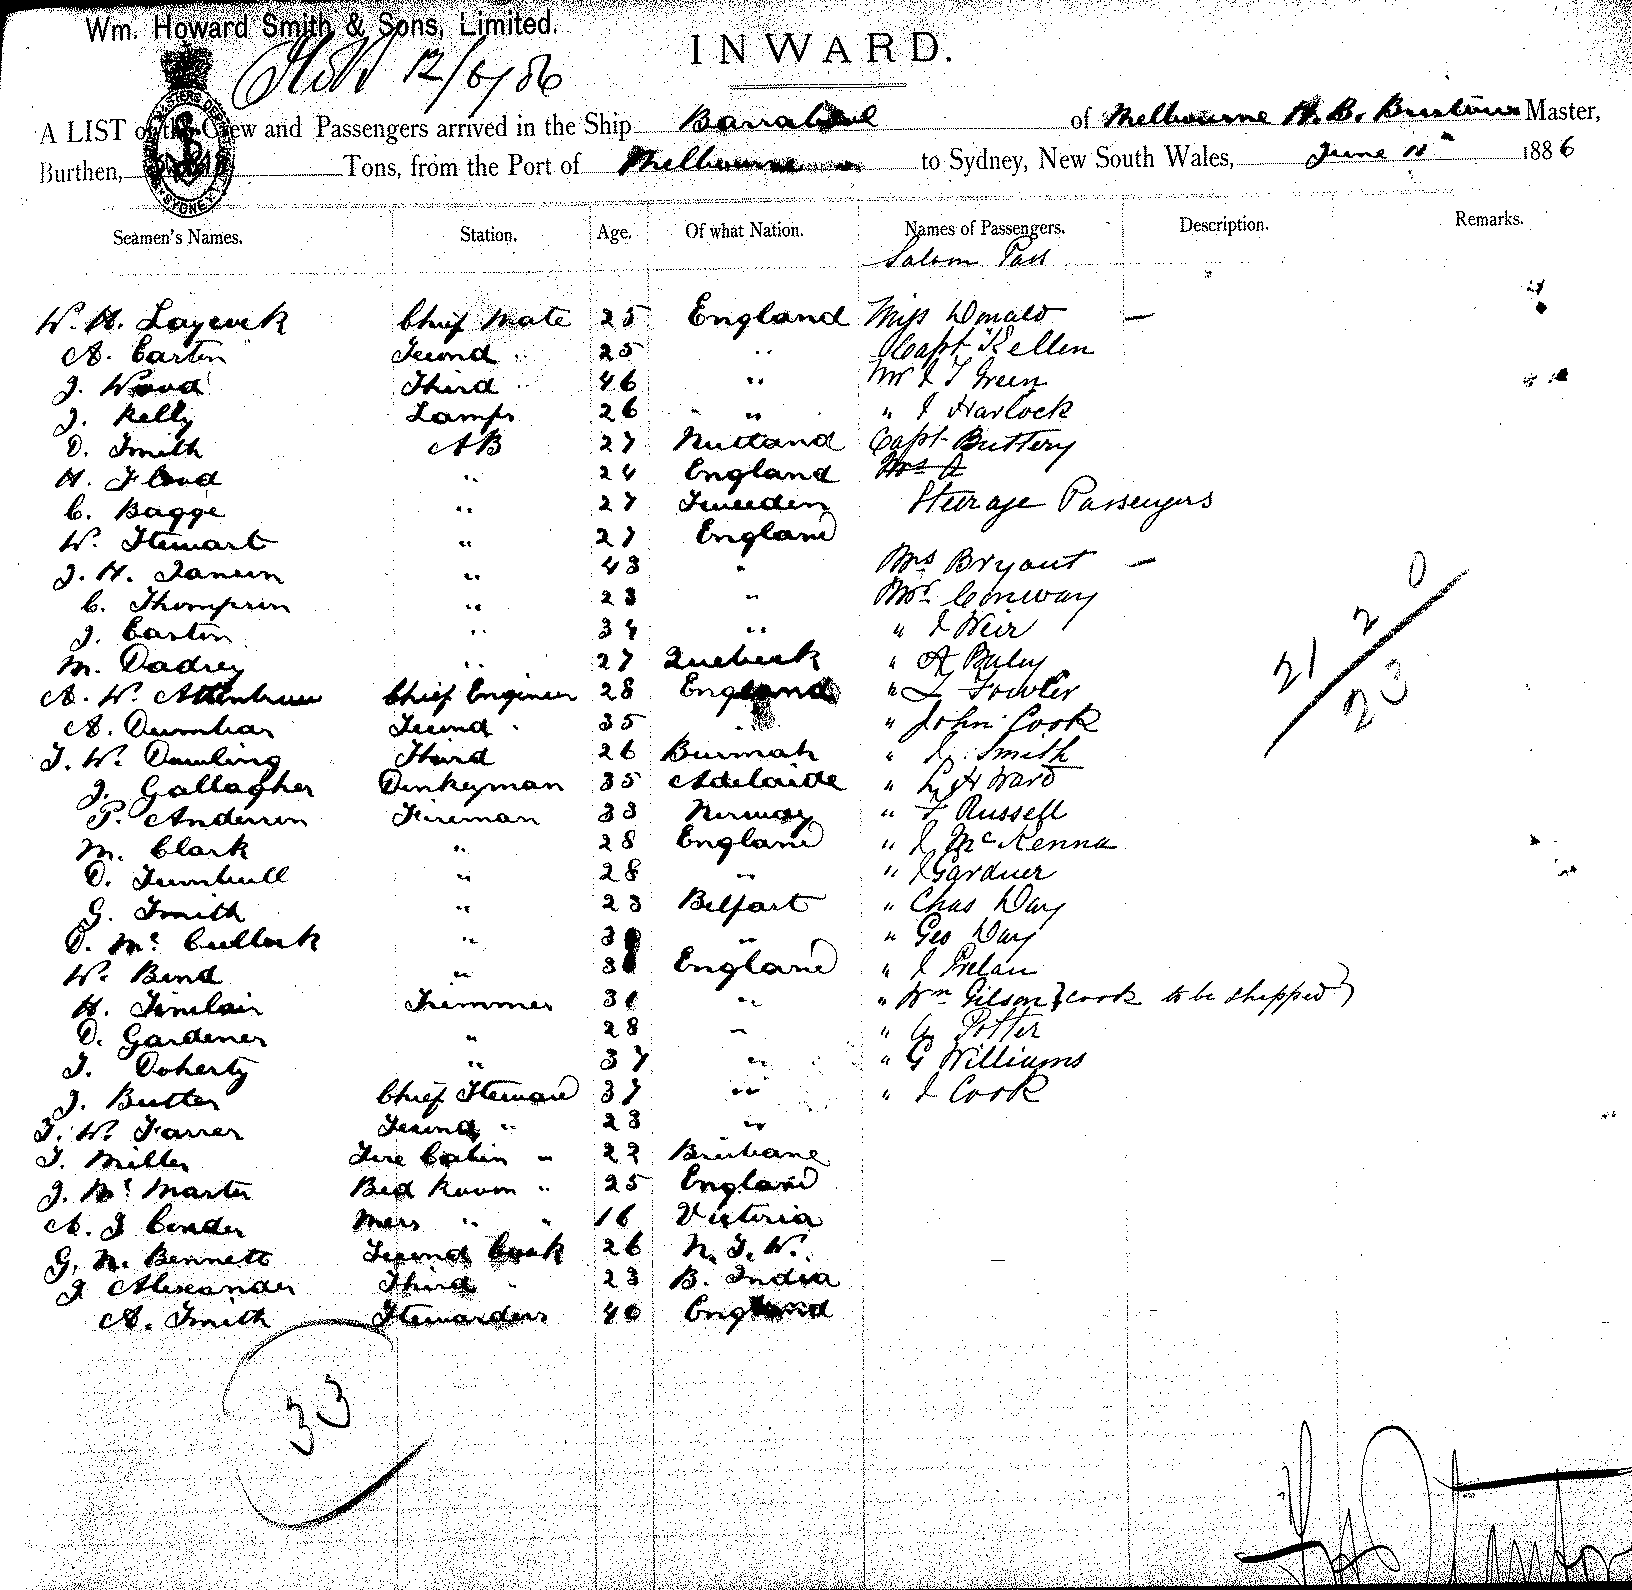 Wm. Howard Smith & Sons, Limited.
INWARD.
12/6/86
A LIST of the Crew and Passengers arrived in the Ship Barrabool of Melbourne H. B. Master,
Burthen, Tons, from the Port of Melbourne to Sydney, New South Wales, June 11th 1886
Seamen's Names. Station. Age. Of what Nation. Names of Passengers. Description. Remarks.
Saloon Pass
W. H. Laycock Chief Mate 25 England Miss Donald —
A. Easton Second " 25 " Capt Kellen
J. Wood Third " 46 " Mr J T Green
J. Kelly Lamps 26 " " J Harlock
D. Smith AB 27 Capt Buttery
H. Flood " 24 England Mrs A
C. Bagge " 27 Sweeden Steerage Passengers
W. Stewart " 27 England
J. H. Jansen " 43 " Mrs Bryant —
C. Thompson " 23 " Mr Conway
J. Easton " 34 " " J Weir
M. " 27 Quebeck " A
A. W. Chief Engineer 28 England " T Fowler
A. Dumbar Second " 35 " " John Cook
J. W. Dowling Third 26 Burmah " J. Smith
J. Gallagher Donkeyman 35 Adelaide " L H Ward
P. Anderson Fireman 33 Norway " F Russell
M. Clark " 28 England " J McKenna
D. Turnbull " 28 " " J Gardner
G. Smith " 23 Belfast " Chas Day
D. McCullock " " " Geo Day
W. Bond " England " J
H. Sinclair Trimmer 31 " " Wm Gilson } cook to be shipped )
D. Gardener " 28 " " G Potter
J. Doherty " 37 " " G Williams
J. Butler Chief Steward 37 " " J Cook
J. W. Farrer Second " 23 "
J. Miller Fore Cabin " 22 Brisbane
J. McMaster Bed Room " 25 England
A. J Conder Mess " " 16 Victoria
G. N. Bennett Second Cook 26 N. S. W.
J Alexander Third " 23 B. India
A. Smith Stewardess 40 England
21 2 0
23
33